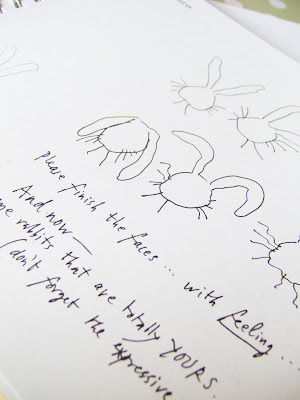 Please finish the faces... with feeling....
And now—
rabbits that are totally YOURS.
(don't forget the expressive